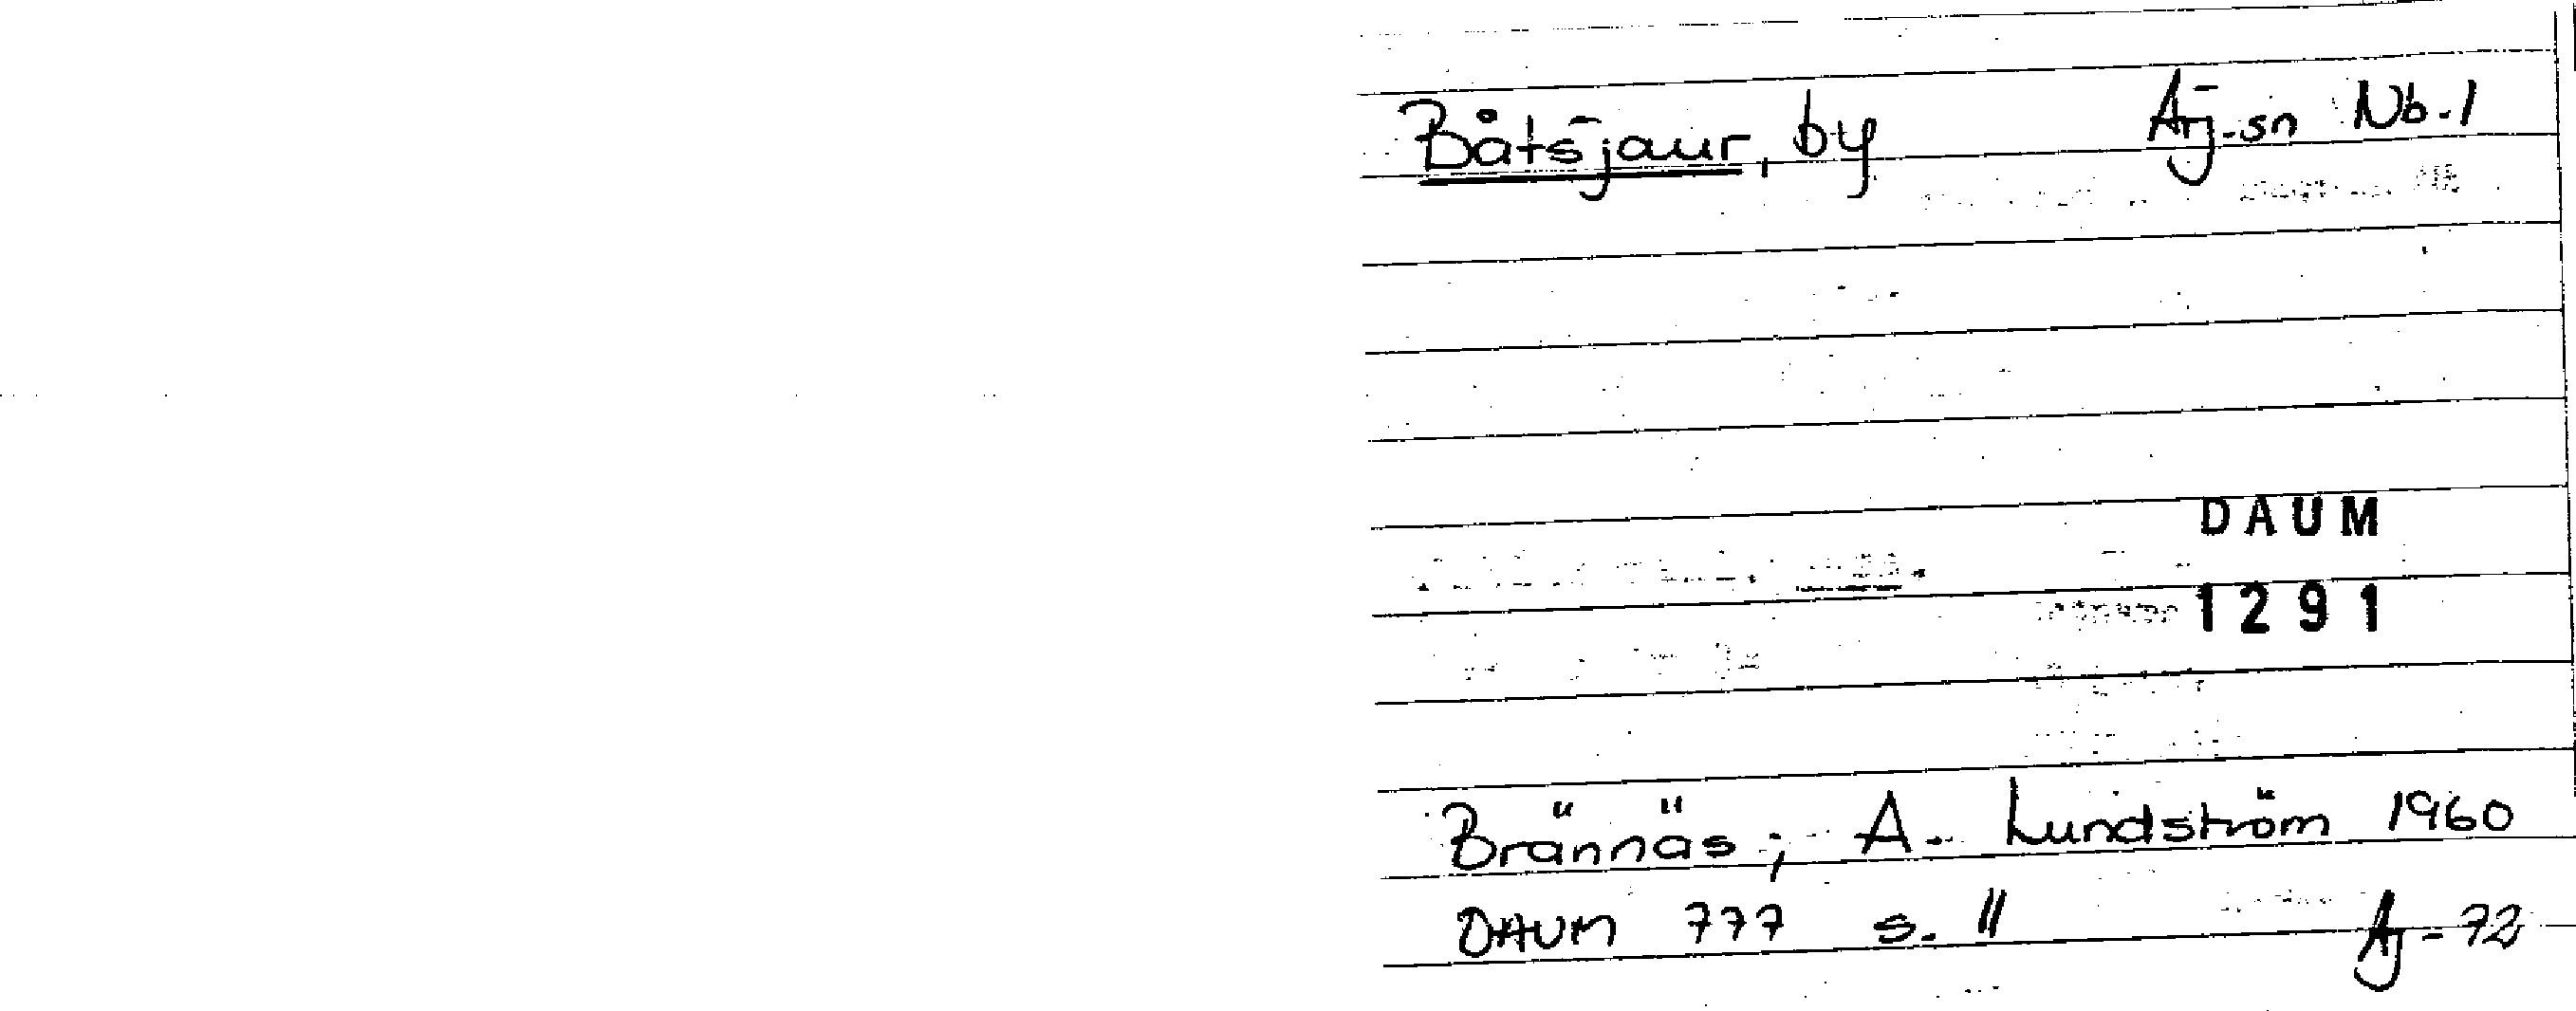 Båtsjaur, by Arj.sn Nb.1
DAUM
1291
Brännäs; A. Lundström 1960
DAUM 777 s. 11 Aj-72